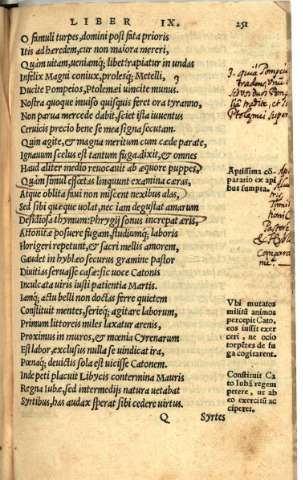 LIBER IX. 251
O famuli turpes, domini post fata prioris
Itis ad hæredem, cur non maiora mereri,
Quàm uitam, ueniamq; libet? rapiatur in undas
Infelix Magni coniux, prolesq; Metelli,
Ducite Pompeios, Ptolemæi uincite munus.
Nostra quoque inuiso quisquis feret ora tyranno,
Non parua mercede dabit, sciet ista iuuentus
Ceruicis precio bene se mea signa secutam.
Quin agite, & magna meritum cum cæde parate,
Ignauum scelus est tantum fuga. dixit, & omnes
Haud aliter medio reuocauit ab æquore puppes,
Quàm simul effœtas linquunt examina ceras,
Atque oblita faui non miscent nexibus alas,
Sed sibi quæque uolat, nec iam degustat amarum
Desidiosa thymum: Phrygij sonus increpat æris,
Attonitæ posuere fugam, studiumq; laboris
Florigeri repetunt, & sacri mellis amorem,
Gaudet in hyblæo securus gramine pastor
Diuitias seruasse casæ: sic uoce Catonis
Inculcata uiris iusti patientia Martis.
Iamq; actu belli non doctas ferre quietem
Constituit mentes, serieq; agitare laborum,
Primum littoreis miles laxatur arenis,
Proximus in muros, & mœnia Cyrenarum
Est labor, exclusus nulla se uindicat ira,
Pœnaq; de uictis sola est uicisse Catonem.
Inde peti placuit Libyci contermina Mauris
Regna Iubæ, sed intermedijs natura uetabat
Syrtibus, has audax sperat sibi cedere uirtus.
Q Syrtes
Aptissima cõ-
paratio ex api
bus sumpta.
Vbi mutatos
militũ animos
percepit Cato,
eos iussit exer
ceri, ne ocio
torpẽtes de fu
ga cogitarent.
Constituit Ca
to Iubã regem
petere, ut ab
eo exercitũ ac
ciperet.